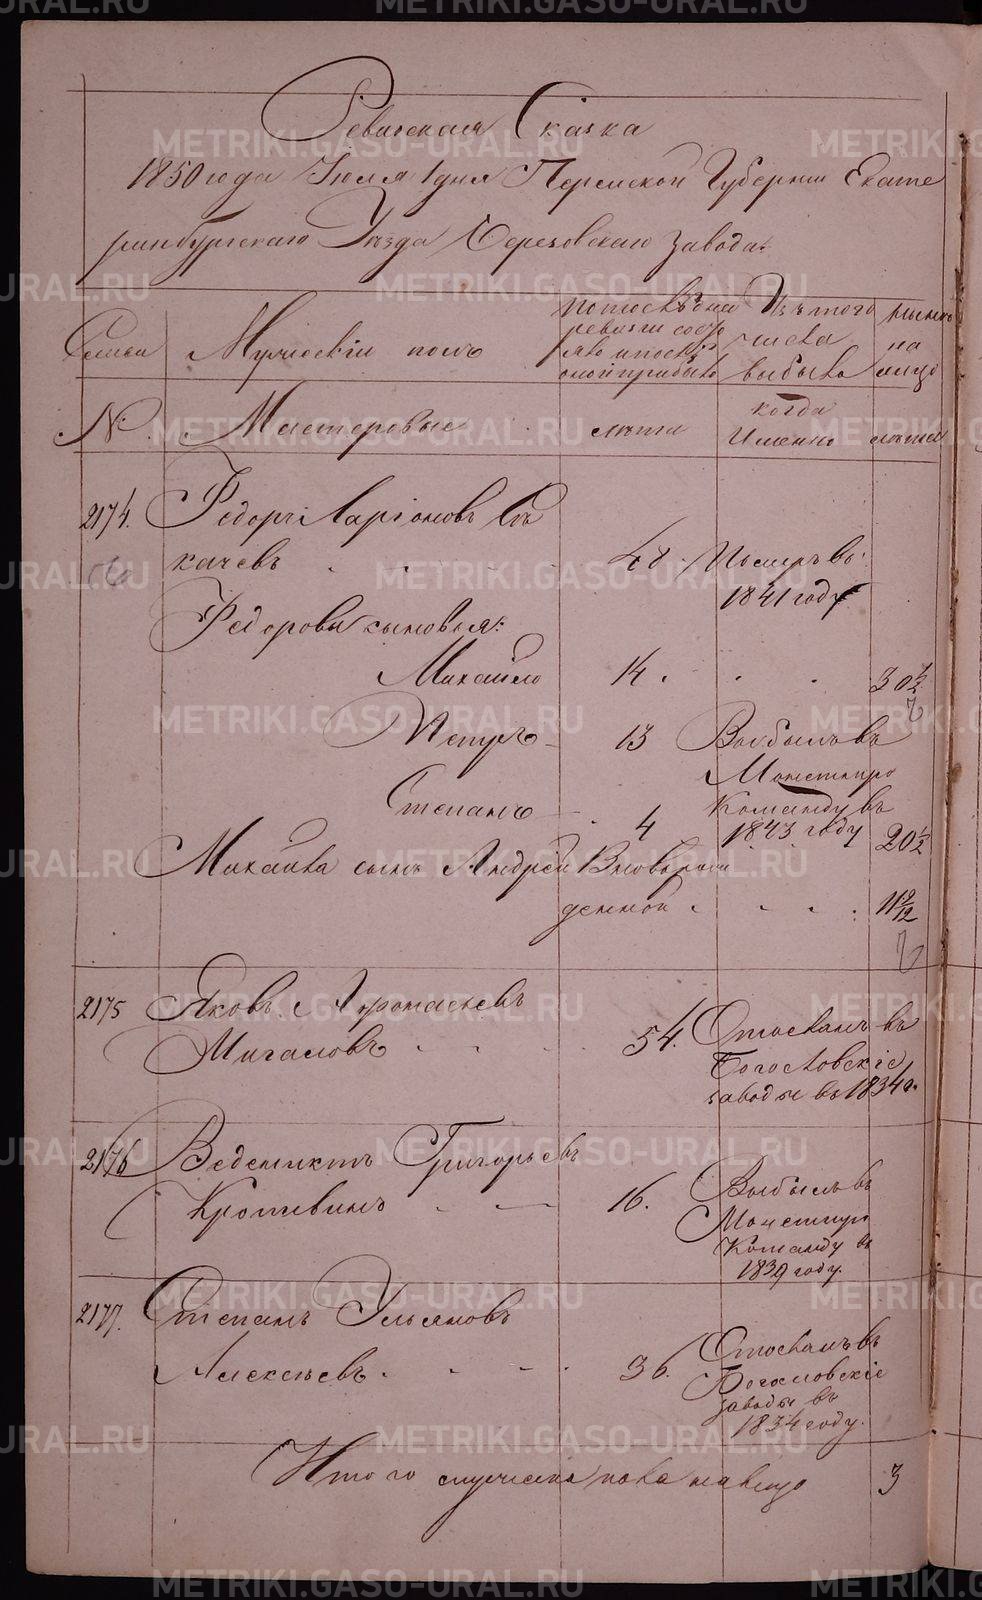 Ревизская Сказка
1850 года Июля 1 дня Пермской Губернии Екате
ринбургскаго Уезда Березовскаго завода:
Семьи
Мужескiй полъ
по последней ревизiи состо
яло и после
оной прибыло
Изъ того
числа
выбыло
ныне
на
лицо
№
Мастеровые
лета
когда
Именно
лета
2174. Федоръ Ларiоновъ
качевъ 48 Померъ въ
1841 году
Федорова сыновья:
Михайло 14. 30 1/2
Петръ 13 Выбылъ въ
Монетную
Степанъ 4 Команду въ
1843 году 20 1/2
Михайла сынъ Андрей Вновьрож
денной 11 9/12
2175 Яковъ Афонасьевъ
Мигаловъ 54. Отосланъ въ
Богословскiе
заводы въ 1834 г.
2176 Ведениктъ Григорьевъ
Кропивинъ 16. Выбылъ въ
Монетную
Команду въ
1839 году.
2177. Степанъ Ульяновъ
Алексеевъ 36. Отосланъ въ
Богословскiе
заводы въ
1834 году.
Итого мужеска пола на лицо 3
METRIKI.GASO-URAL.RU